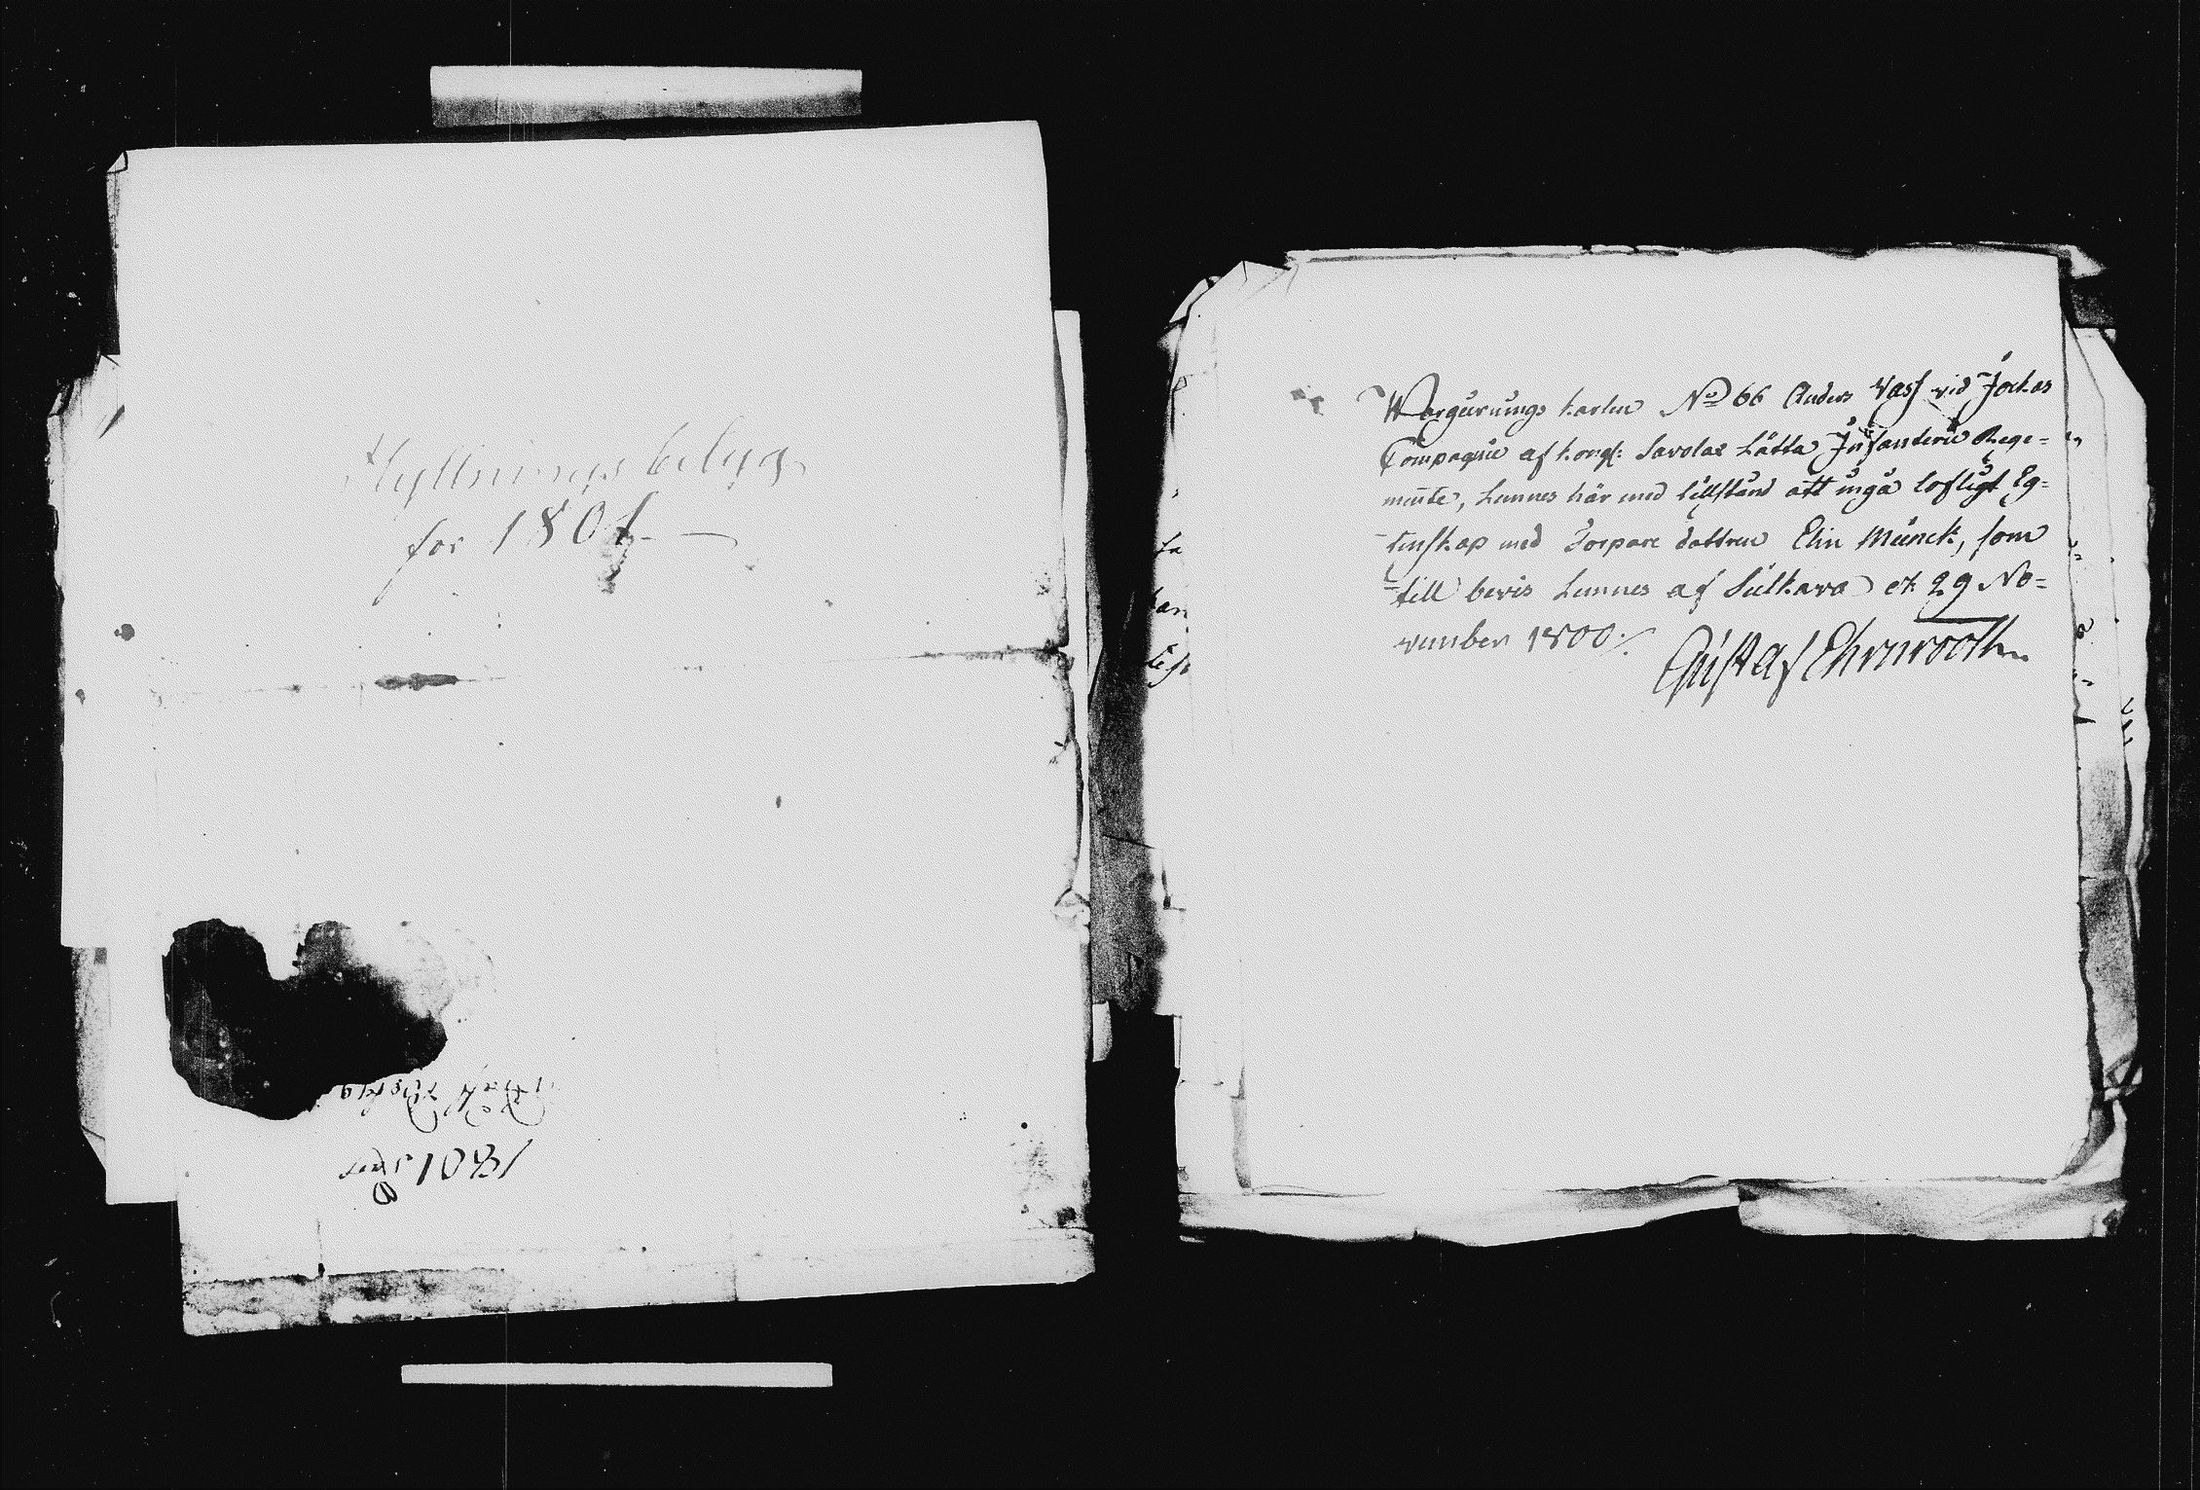 Flyttnings belyg
for 1801.
1801 års
Wargerings karlen No 66 Anders Vass vid Jockas
Compagnie af kongl: Savolax Lätta Infanterie Rege=
mente, Lemnes här med tillstånd att ingå lofligt Eg=
tenskap med Torpare dottren Elin Munck, som
till bevis Lemnes af Sulkava et 29 No=
vember 1800 ./.
Gustaf Ehrnrooth